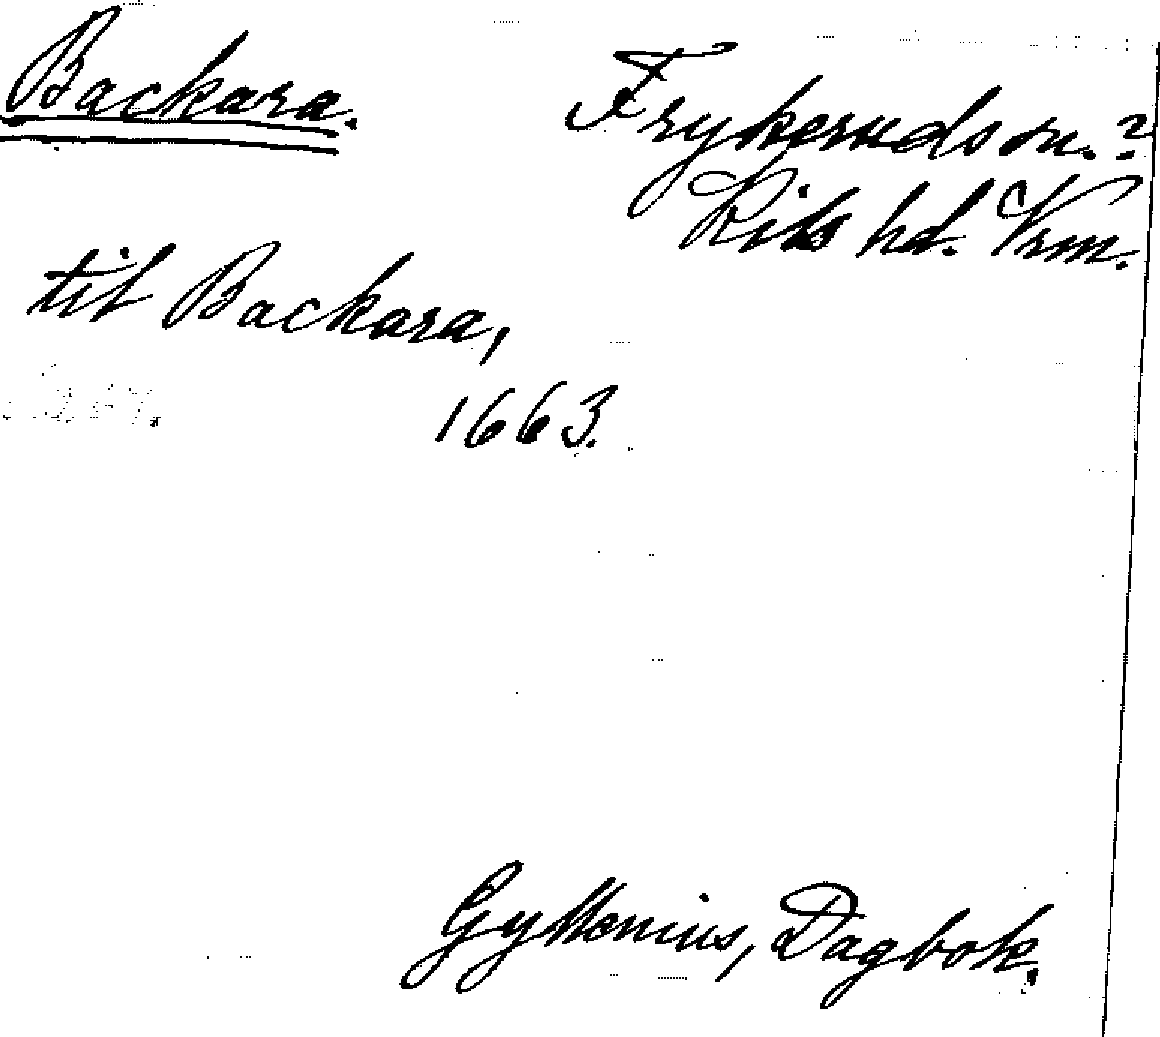 Backara.
Frykerud sn.?
Kils hd. Vrm.
til Backara,
1663.
Gyllenius, Dagbok.